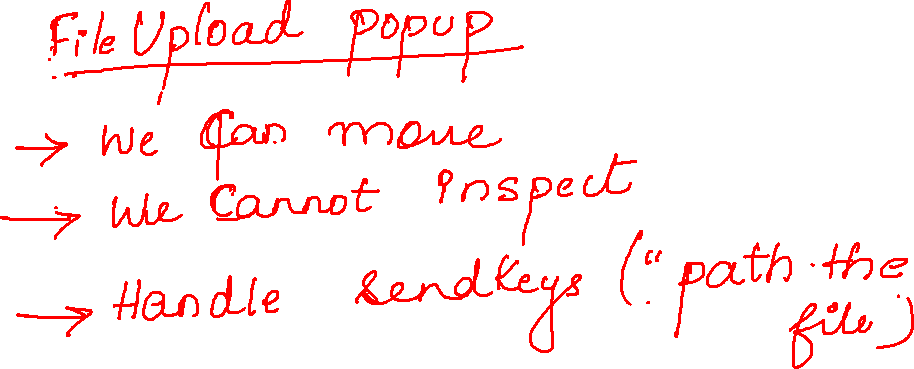 File Upload popup
→ We Can move
→ We Cannot inspect
→ Handle sendkeys (“path the
file)